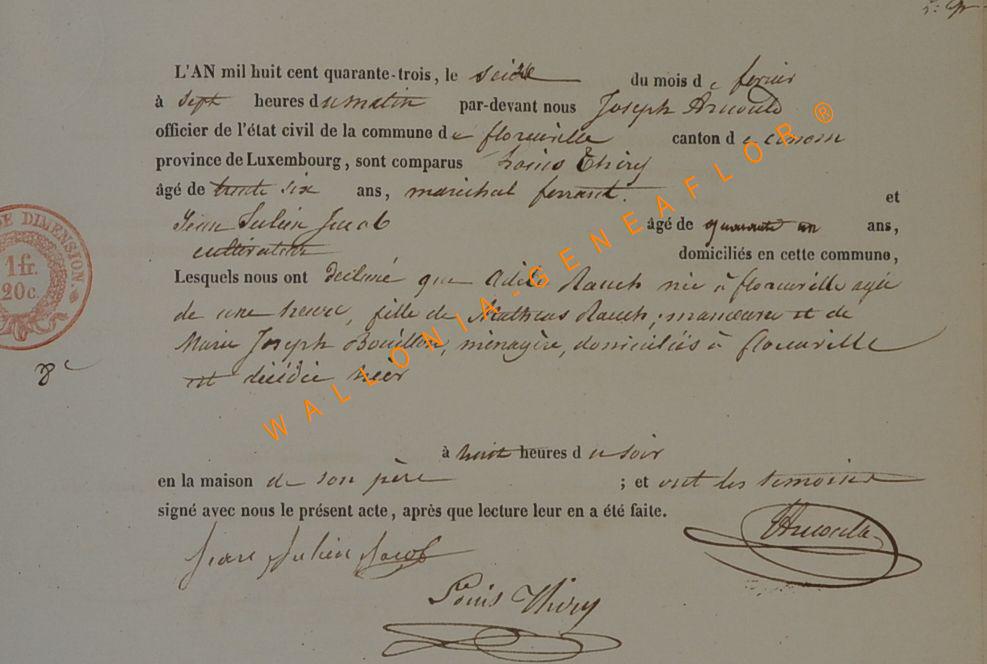 L'AN mil huit cent quarante-trois, le seize du mois de fevrier
à sept heures du matin par-devant nous Joseph Arnould
officier de l'état civil de la commune de florenville canton d
province de Luxembourg, sont comparus Louis Thiry
âgé de trente six ans, marechal ferrant. et
Jean Julien Jacob âgé de quarante un ans,
cultivateur domiciliés en cette commune,
Lesquels nous ont declaré que Adèle Rauch née à florenville agée
de une heure, fille de Mathias Rauch, manoeuvre et de
Marie Joseph Bouillon, ménagère, domiciliés à florenville
est décédée hier
à huit heures du soir
en la maison de son père ; et ont les temoins
signé avec nous le présent acte, après que lecture leur en a été faite.
Jean Julien Jacob
Arnould
Louis Thiry
DE DIMENSION.
1 fr.
20 c.
WALLONIA-GENEAFLOR®